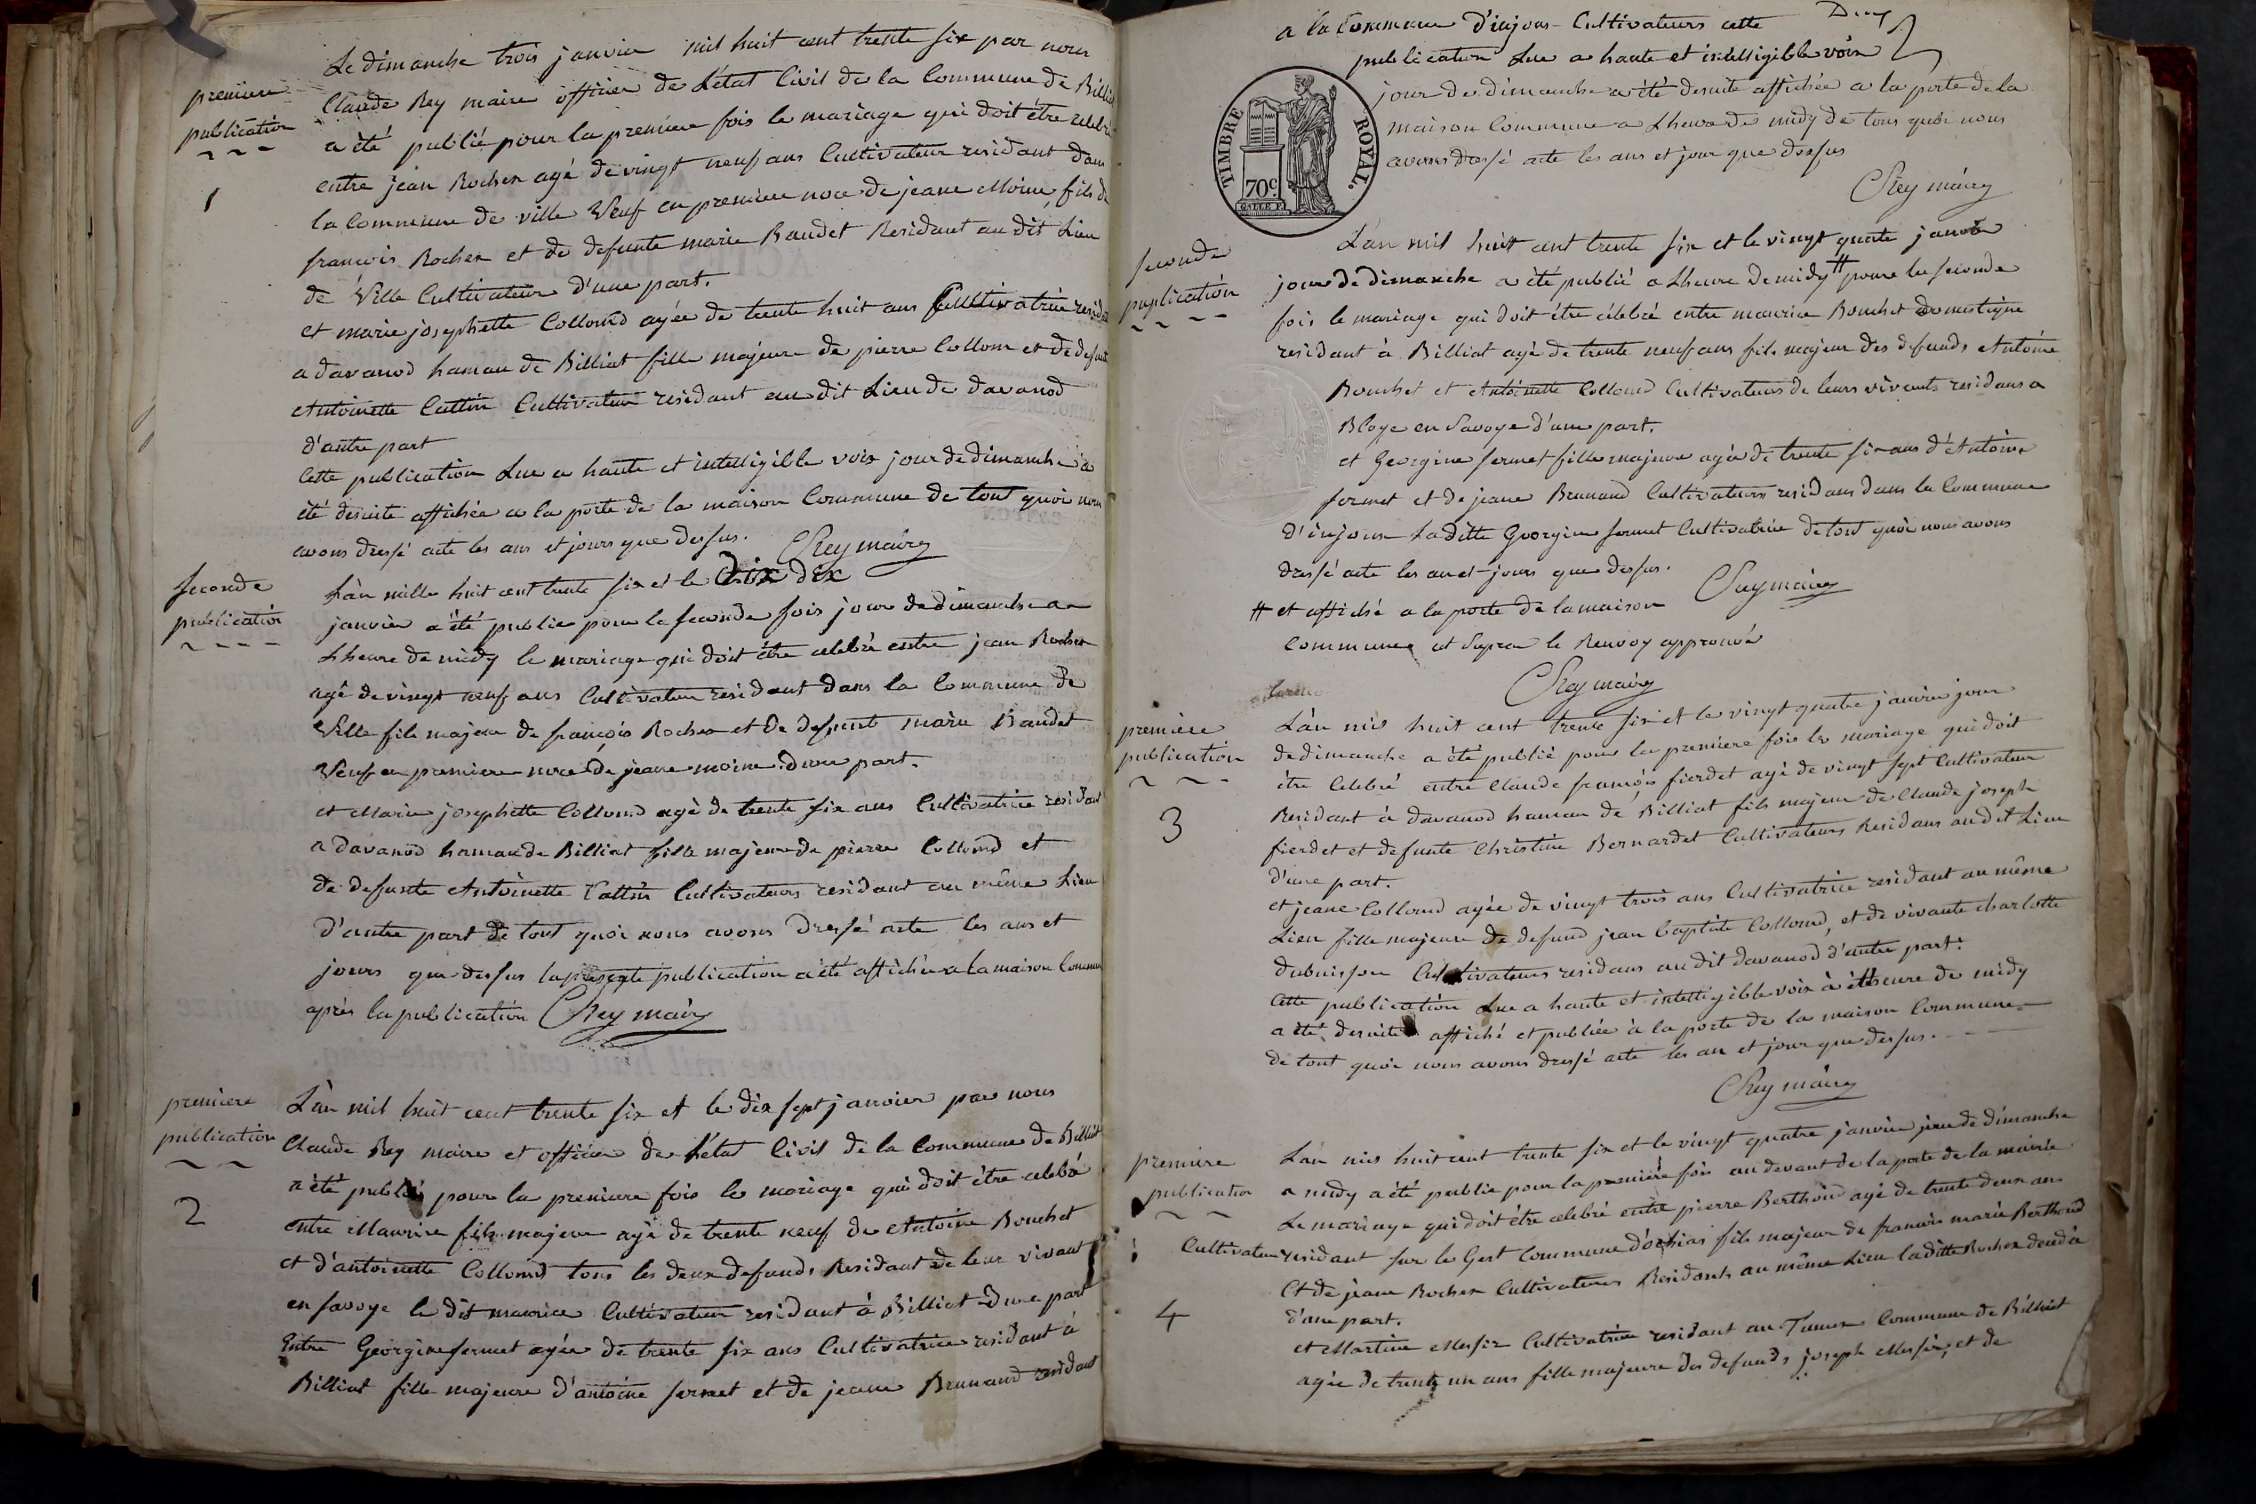 Le dimanche trois janvier mil huit cent trente six par nous
première
publication
Claude Rey maire officier de L'état Civil de la Commune de Billiat
a été publié pour la première fois le mariage qui doit être celebré
1
entre jean Rocher agé de vingt neuf ans Cultivateur residant dans
la Commune de ville Veuf en premiere noce de jeane Moine, fils de
francois Rocher et de defunte marie Baudet Residant au dit Lieu
de Ville Cultivateur d'une part.
et marie josephette Collomd agée de trente huit ans Cultivatrice
a davanod hamau de Billiat fille majeure de pierre Collom et de
Antoinette Cattin Cultivateur residant au dit Lieu de davanod
d'autre part
Cette publication Lue a haute et intelligible voix jour de dimanche a
été desuite affichée a la porte de la maison Commune de tout quoi nous
avons dressé acte les ans et jours que dessus. CRey maire
seconde
publication
L'àn mille huit cent trente six et le dix
janvièr a été publiée pour la seconde fois jour de dimanche a
Lheure de midy le mariage qui doit être celebré entre jean Rocher
agé de vingt neuf ans Cultivateur residant dans la Commune de
Ville fils majeur de françois Rocher et de defunte marie Baudet
Veuf en premiere noce de jeane moine d'une part.
et Marie josephette Collomd agé de trente six ans Cultivatrice
a davanod hamau de Billiat fille majeure de pierre Collomd et
de defunte Antoinette Cattin Cultivateurs residant au même Lieu
d'autre part de tout quoi nous avons dressé acte les ans et
jours que dessus la presente publication a été affichée a la maison
après la publication CRey maire
première
publication
L'àn mil huit cent trente six et le dix sept janvier par nous
Claude Rey maire et officier de L'état Civil de la Commune de Billiat
a été publié pour la premiere fois le mariage qui doit être celebré
2
entre Maurice fils majeur agé de trente neuf de Antoine Bouchet
et d'antoinette Collomd tous les deux defunds Residant de leur vivant
en savoye le dit maurice Cultivateur residant à Billiat d'une part
Entre Georgine fermet agée de trente six ans Cultivatrice residant à
Billiat fille majeure d'antoine fermet et de jeane Brunand residant
a la Commune d'injoux Cultivateurs cette
publication Lue a haute et intelligible voix
TIMBRE ROYAL.
70c.
jour de dimanche a été desuite affichée a la porte de la
maison Commune a Lheure de midy de tous quoi nous
avons dressé acte les ans et jour que dessus
CRey maire
seconde
puplication
L'àn mil huit cent trente six et le vingt quatre
jour de dimanche a été publié a Lheure de midy # pour la seconde
fois le mariage qui doit être célebré entre maurice Bouchet domestique
residant à Billiat agé de trente neuf ans fils majeur des defunds Antoine
Bouchet et Antoinette Collomd Cultivateurs de leurs vivants residans a
Bloye en Savoye d'une part.
et Georgine fermet fille majeure agée de trente six ans d'Antoine
fermet et de jeane Brunand Cultivateurs residans dans la Commune
d'injoux Ladite Georgine fermet Cultivatrice de tout quoi nous avons
dressé acte les an et jours que dessus. CRey maire
# et affiché a la porte de la maison
Commune
le Renvoy approuvé
CRey maire
première
publication
L'àn mil huit cent trente six et le vingt quatre janvier jour
de dimanche a été publié pour la premiere fois le mariage qui doit
être Celebré entre Claude françois fierdet agé de vingt sept Cultivateur
3
Residant à davanod hamau de Billiat fils majeur de Claude joseph
fierdet et defunte Christine Bernardet Cultivateurs Residans audit Lieu
d'une part.
et jeane Collomd agée de vingt trois ans Cultivatrice residant au même
Lieu fille majeure de defund jean baptiste Collomd, et de vivante charlotte
dubuisson Cultivateurs residans audit davanod d'autre part.
Cette publication Lue a haute et intelligible voix à Lheure de midy
a été desuite affiché et publiée à la porte de la maison Commune
de tout quoi nous avons dressé acte les an et jour que dessus.
CRey maire
première
publication
L'àn mil huit cent trente six et le vingt quatre janvier jour de dimanche
a midy a été publie pour la première fois au devant de la porte de la mairie
Le mariage qui doit être celebré entre pierre Berthoud agé de trente deux ans
Cultivateur residant sur le Gest Commune d'ochias fils majeur de francois marie Berthoud
Et de jeane Rocher Cultivateurs Residants au même Lieu laditte Rocher
4
d'une part.
et Martine Messin Cultivatrice residant au Commune de Billiat
agée de trente un ans fille majeure des defunds joseph Messin, et de